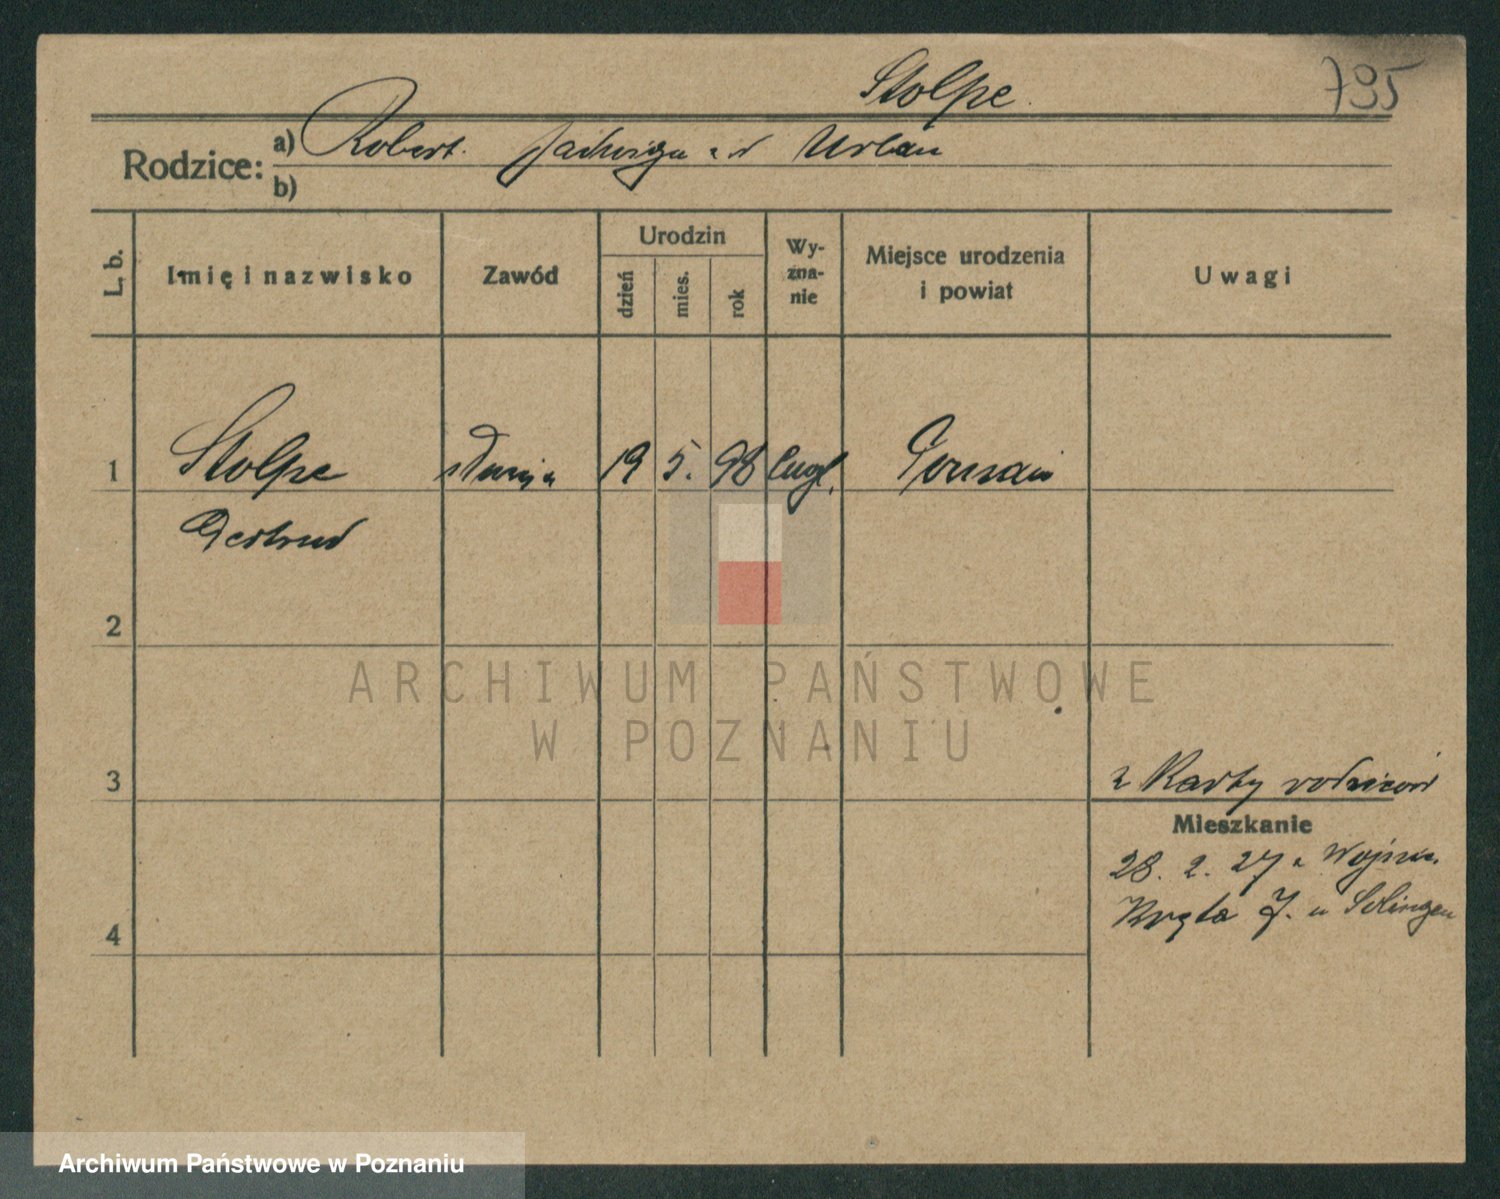 Stolpe
795
Rodzice: a) Robert. Jadwiga z d Urban
b)
L. b.
Imię i nazwisko
Zawód
Urodzin
dzień
mies.
rok
Wy-
zna-
nie
Miejsce urodzenia
i powiat
Uwagi
1 Stolpe 19 5. 98
Gertrud
2
ARCHIWUM PAŃSTWOWE
W POZNANIU
3 z Karty rodziców
Mieszkanie
28. 2. 27
4 7. Solingen
Archiwum Państwowe w Poznaniu